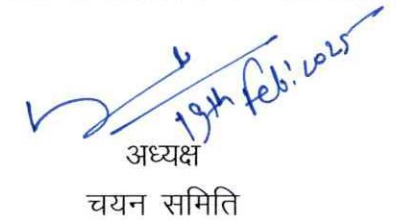 19th Feb! 2025
अध्यक्ष
चयन समिति